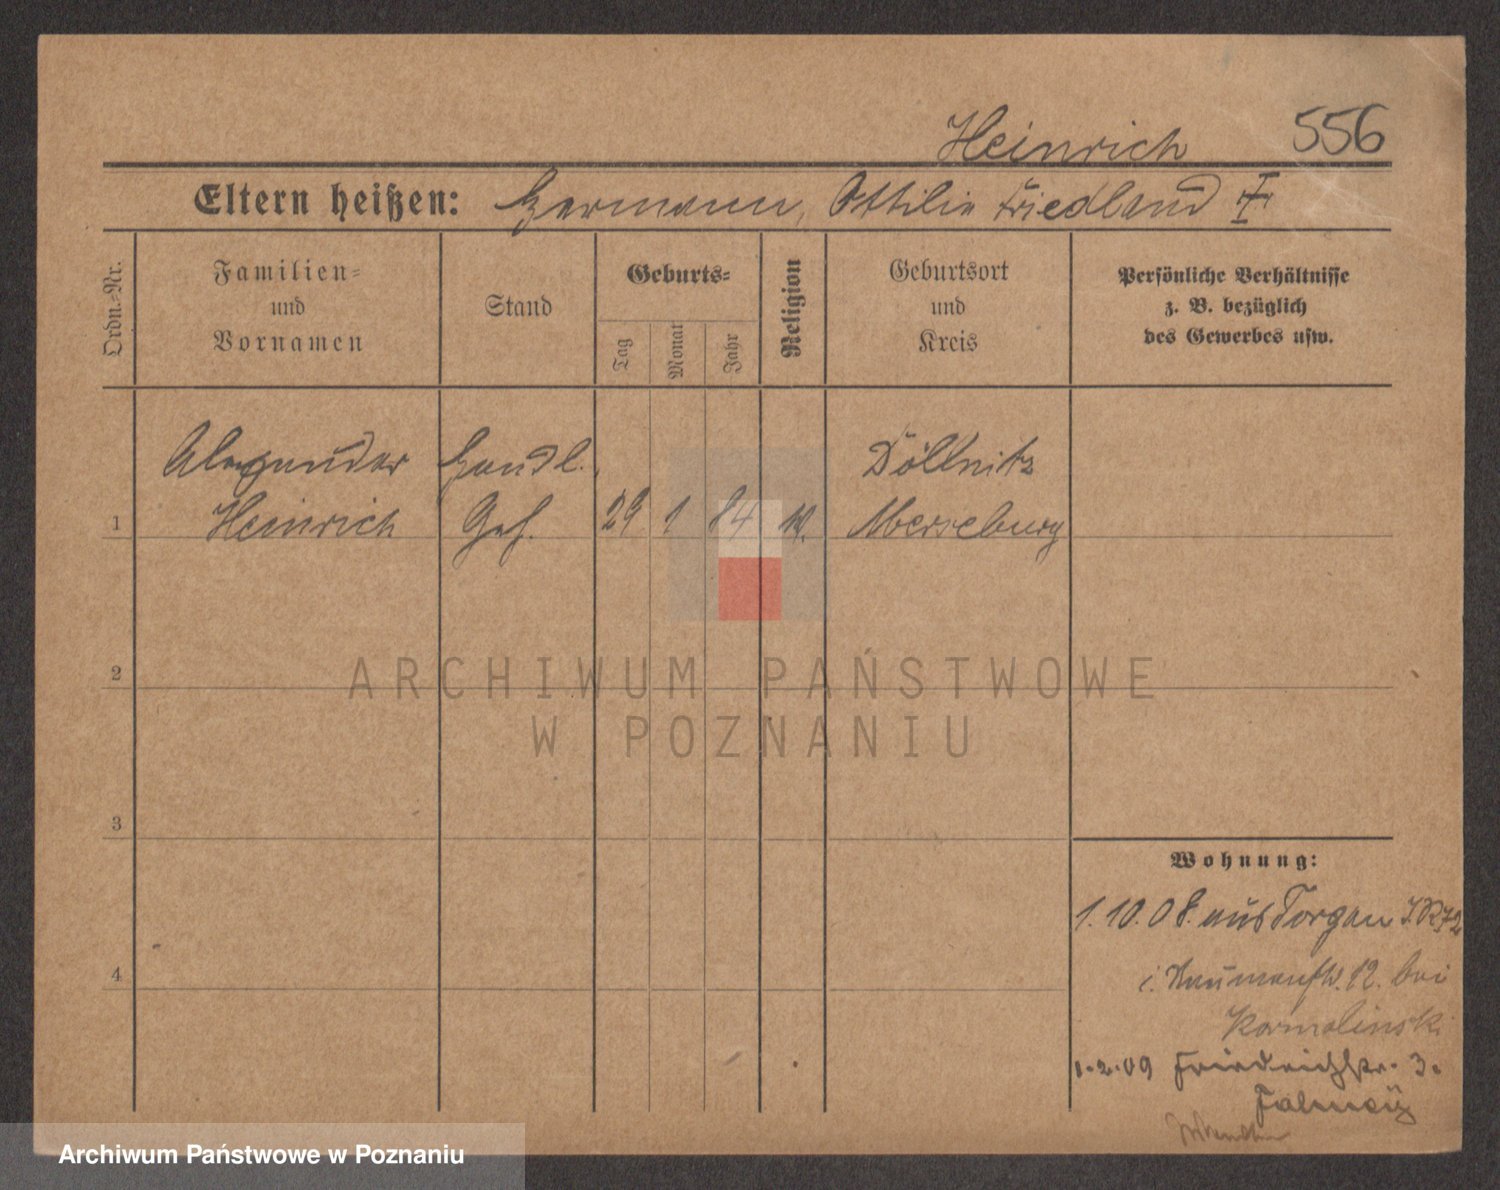 Heinrich 556
Eltern heißen: Hermann, Ottilie Friedland
Ordn.=Nr.
Familien=
und
Vornamen
Stand
Geburts=
Tag
Monat
Jahr
Religion
Geburtsort
und
Kreis
Persönliche Verhältnisse
z. B. bezüglich
des Gewerbes usw.
Alexander Handl. Döllnitz
1 Heinrich Geh. 29 1 84 Merseburg
2
3
4
Wohnung:
1.10.08. aus Torgau I.R.72
i. Naumannstr. 12. bei
Karmolinski
1.2.09 Friedrichstr. 3.
ARCHIWUM PAŃSTWOWE
W POZNANIU
Archiwum Państwowe w Poznaniu